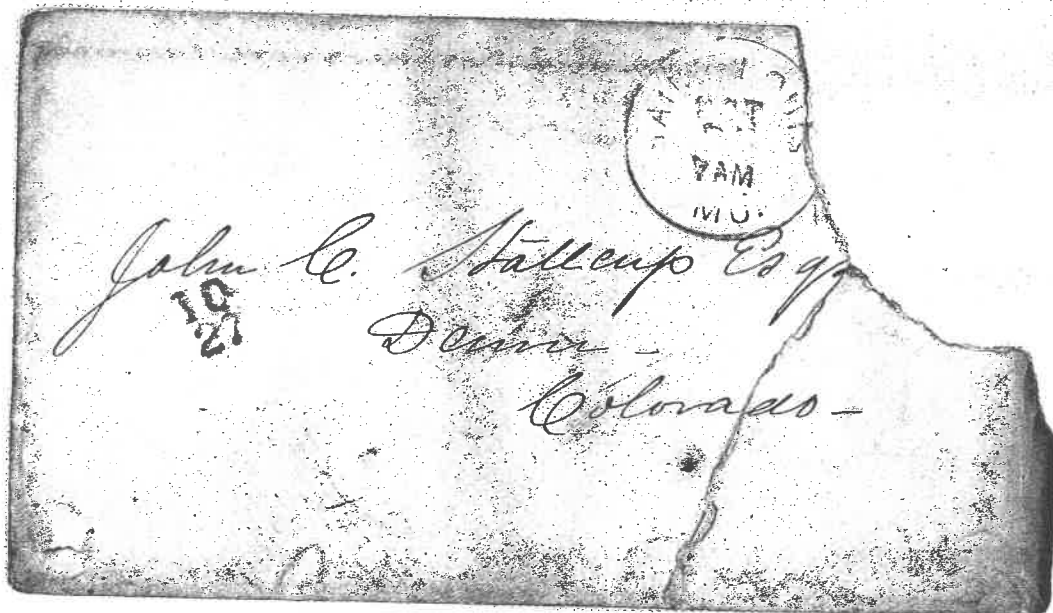 7AM
MO.
John C. Stallcup Esq.
10
27
Denver -
Colorado -